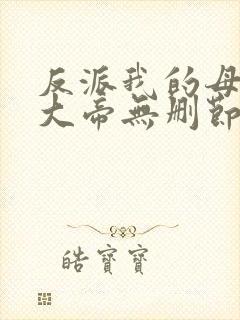 反派我的母
大帝無刪節
皓寶寶